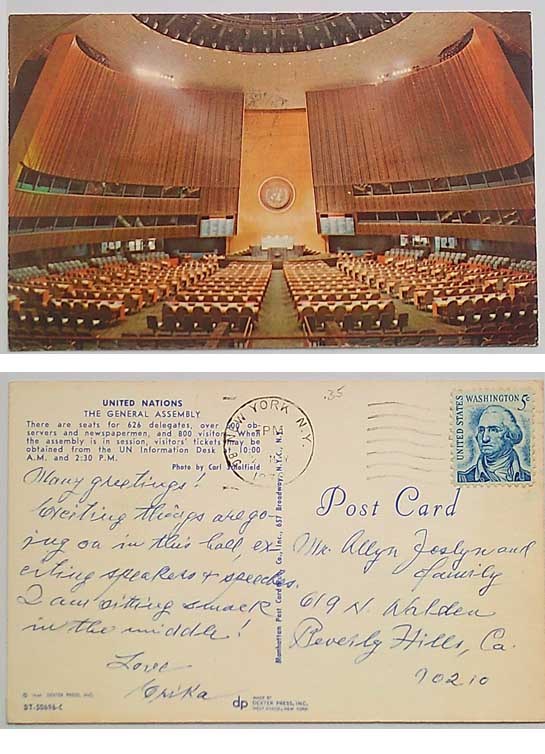 UNITED NATIONS
THE GENERAL ASSEMBLY
There are seats for 626 delegates, over ob-
servers and newspapermen, and 800 visitors. When
the assembly is in session, visitors' tickets may be
obtained from the UN Information Desk 10:00
A.M. and 2:30 P.M.
Photo by Carl
Many greetings!
Exciting things are go-
ing on in this hall, ex-
citing speakers + speeches.
I am sitting smack
in the middle!
Love
Erika
DEXTER PRESS, INC.
DT-50696-C
Manhattan Post Card Co., Inc., 657 Broadway, N.Y.C. N.Y.
dp
MADE BY
DEXTER PRESS, INC.
WEST NYACK, NEW YORK
.35
NEW YORK N.Y.
PM
UNITED STATES
WASHINGTON 5c
Post Card
Mr. Allyn Joslyn and
family
619 N. Walden
Beverly Hills, Ca.
90210